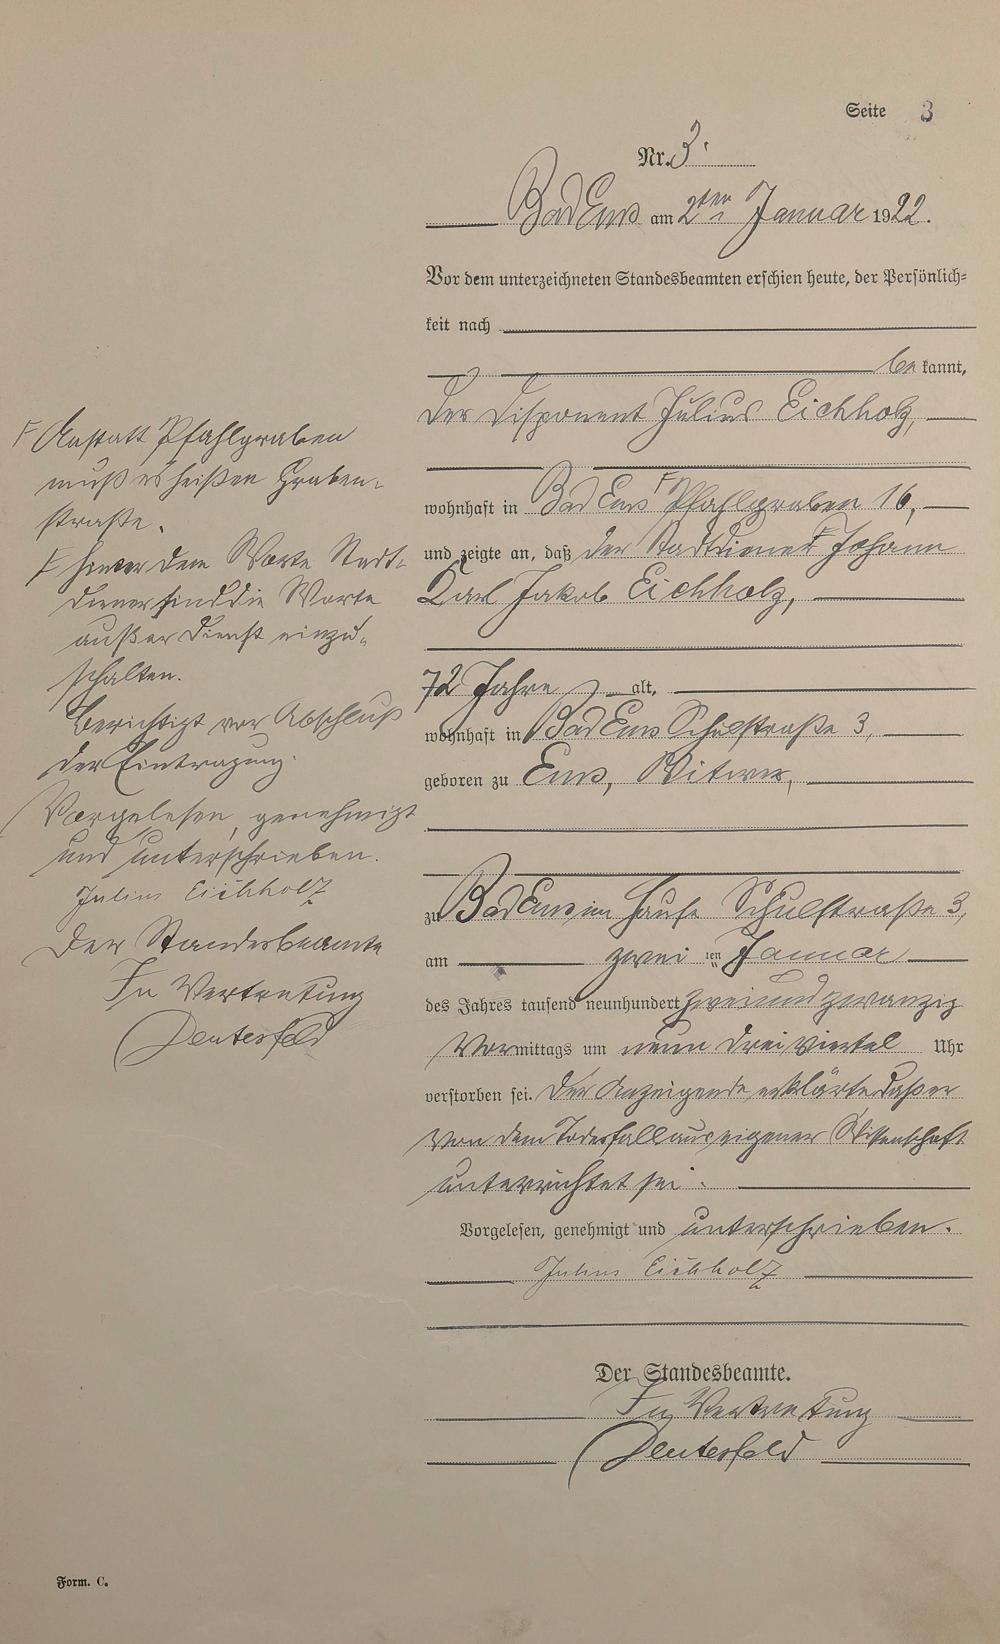 Seite 3
Nr. 3.
Bad Ems am 2ten Januar 1922.
Vor dem unterzeichneten Standesbeamten erschien heute, der Persönlich-
keit nach
bekannt,
der Disponent Julius Eichholz,
wohnhaft in Bad Ems Γ Pfahlgraben 16,
und zeigte an, daß der Stadtdiener F Johann
Karl Jakob Eichholz,
72 Jahre alt,
wohnhaft in Bad Ems Schulstraße 3,
geboren zu Ems, Witwer,
zu Bad Ems im Hause Schulstraße 3,
am zwei ten Januar
des Jahres tausend neunhundert zweiundzwanzig
Vormittags um neun drei viertel Uhr
verstorben sei. Der Anzeigende erklärte daß er
von dem Todesfall aus eigener Wissenschaft
unterrichtet sei.
Vorgelesen, genehmigt und unterschrieben.
Julius Eichholz
Der Standesbeamte.
In Vertretung
Γ Anstatt Pfahlgraben
muß es heißen Graben-
straße.
F hinter dem Worte Stadt-
diener sind die Worte
außer Dienst einzu-
schalten.
Berichtigt vor Abschluß
der Eintragung.
Vorgelesen, genehmigt
und unterschrieben.
Julius Eichholz
Der Standesbeamte
In Vertretung
Form. C.